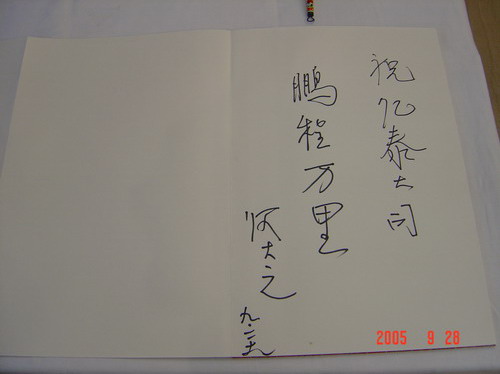 祝亿泰公司
鹏程万里
2005 9 28